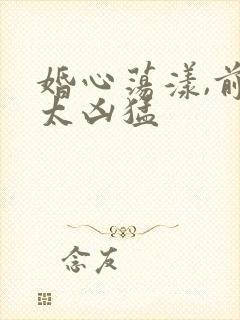 婚心荡漾,前
太凶猛
念友